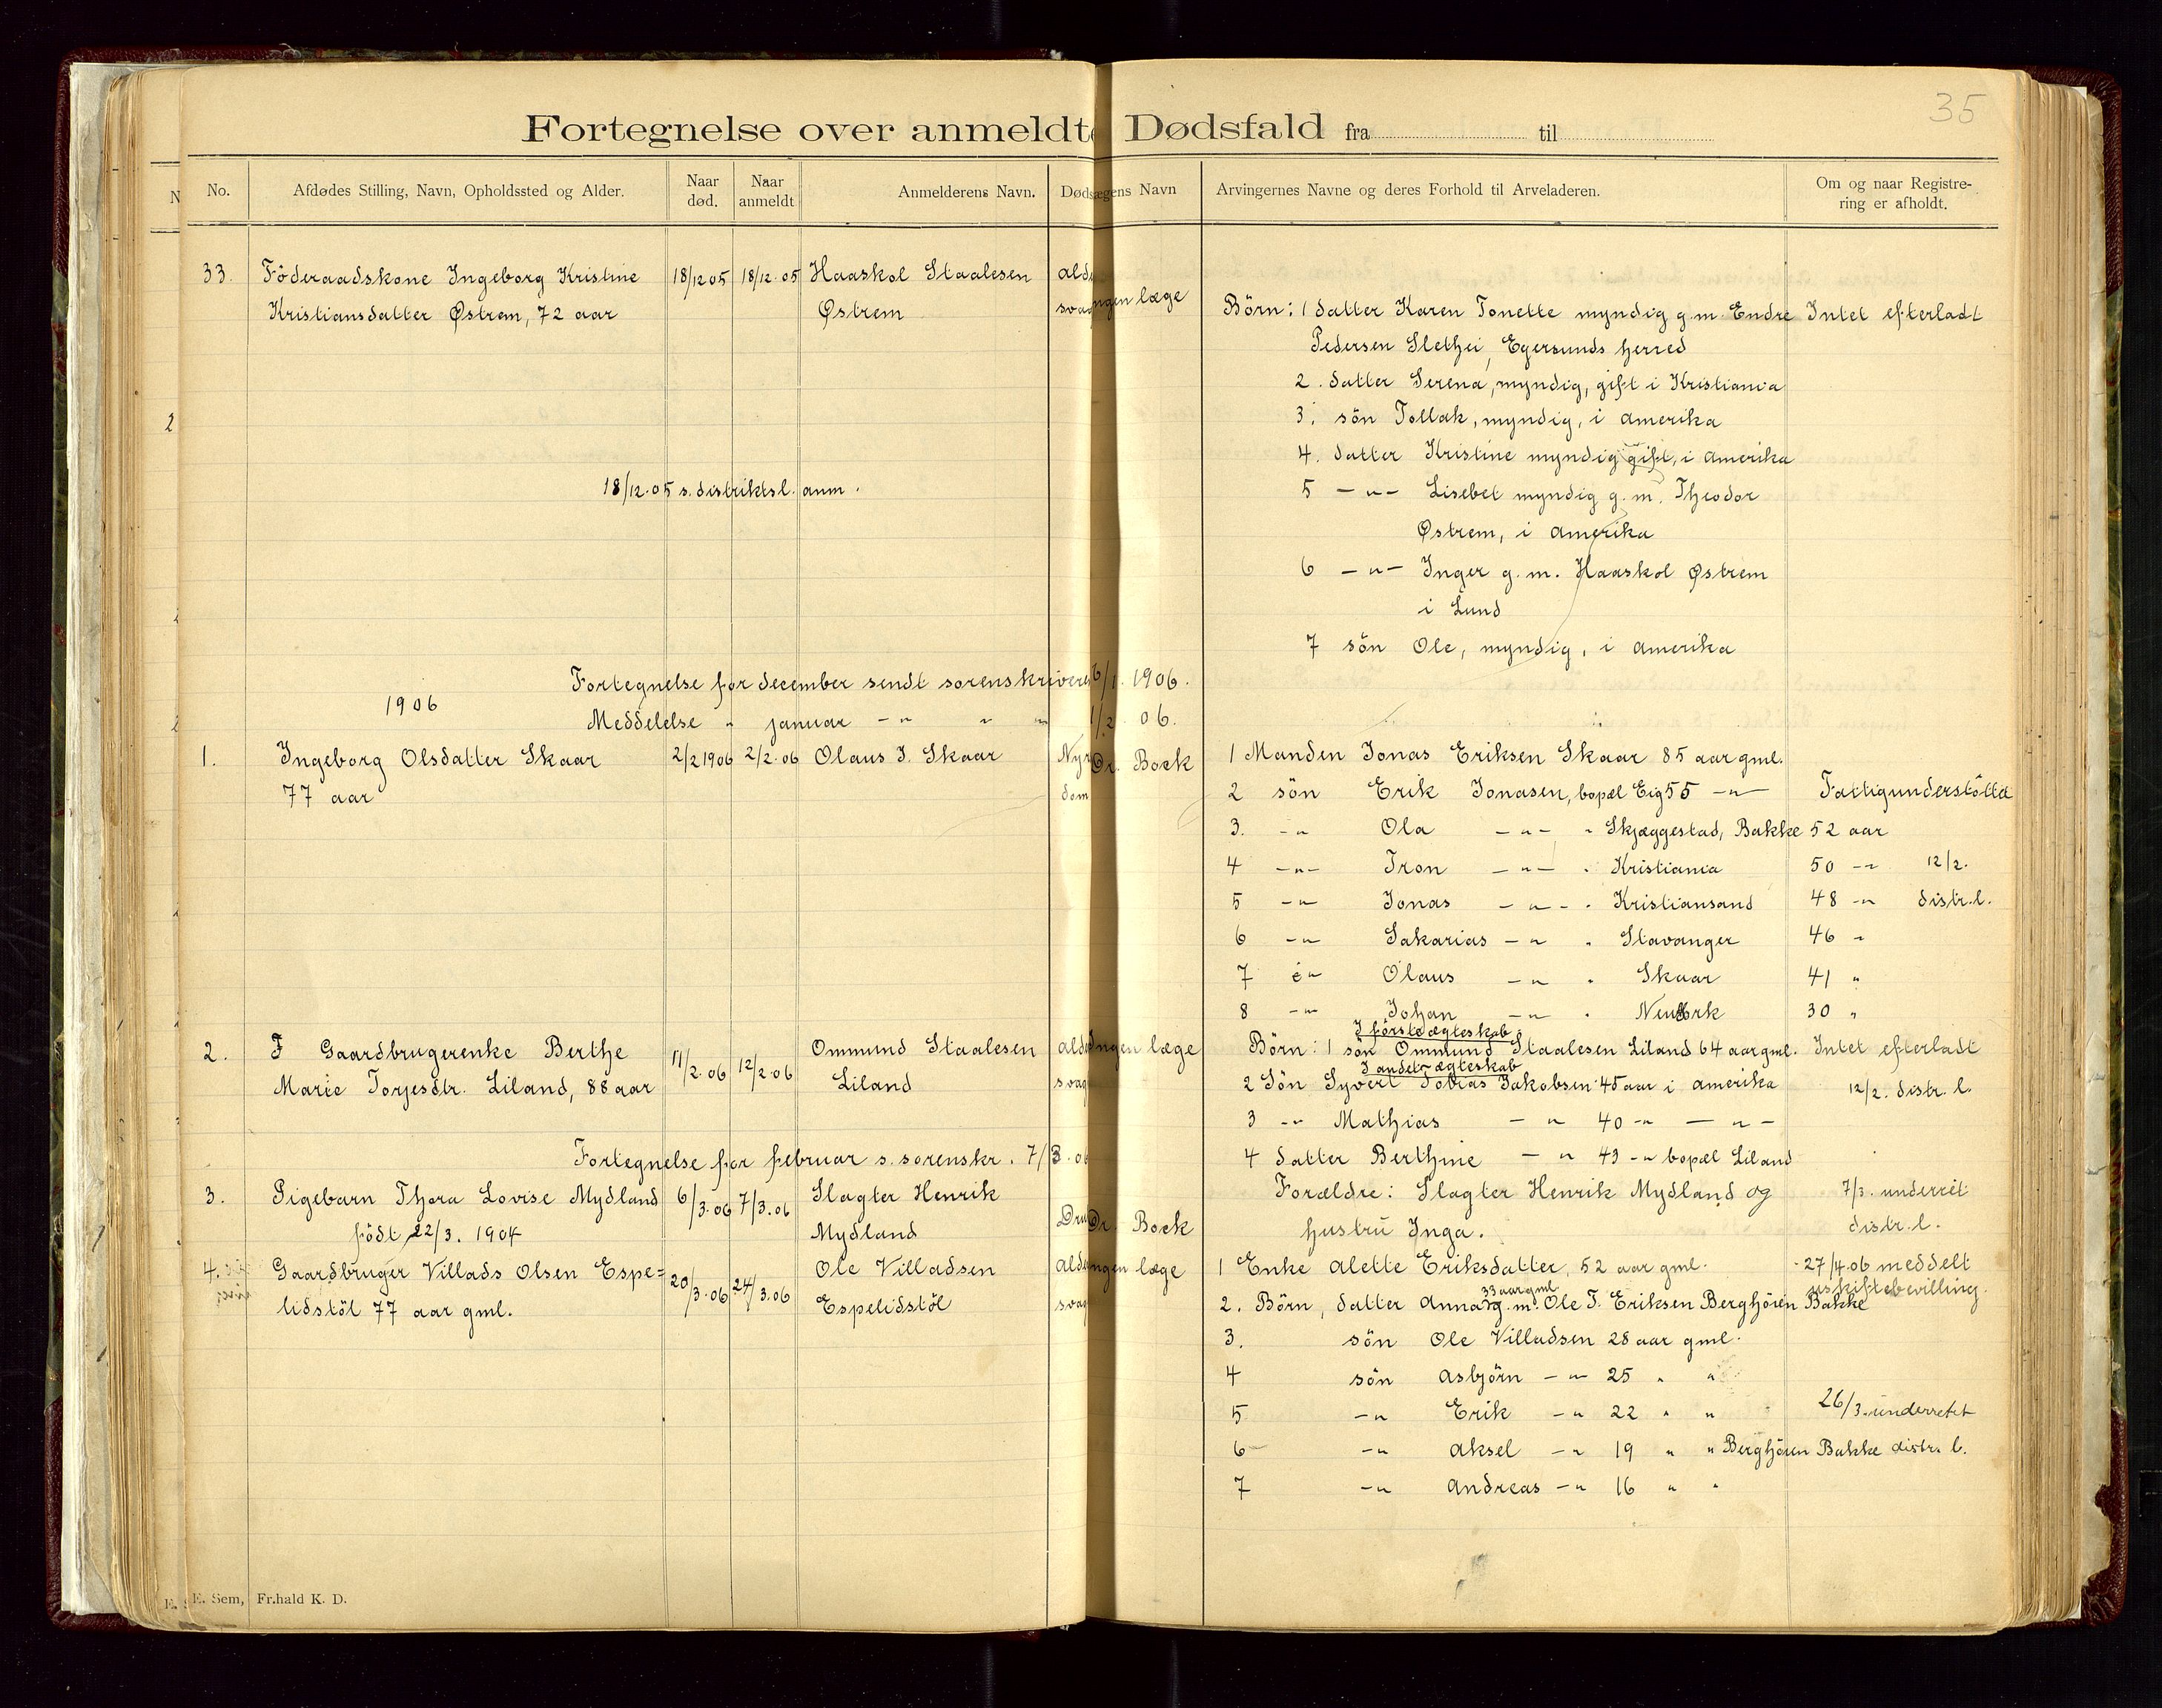 35
Fortegnelse over anmeldte Dødsfald fra til
No. Afdødes Stilling, Navn, Opholdssted og Alder. Naar død. Naar anmeldt Anmelderens Navn. Døds ægens Navn Arvingernes Navne og deres Forhold til Arveladeren. Om og naar Registrering er afholdt.
33. Föderaadskone Ingeborg Kristine 18/12 05 18/12.05 Haaskol Staalesen
Kristiansdatter Østrem, 72 aar Østrem ngen læge
Börn: 1 datter Karen Tonette myndig g.m. Endre Intet efterladt
Pedersen Slethei, Egersunds herred
2. datter Serena, myndig, gift i Kristiania
3. sön Tollak, myndig, i Amerika
4. datter Kristine myndig gift, i Amerika
18/12.05 s. distriktsl. anm.
5 -"- Lisebet myndig g.m. Theodor
Østrem, i Amerika
6 -"- Inger g.m. Haaskol Østrem
i Lund
7 sön Ole, myndig, i Amerika
Fortegnelse for december sendt sorenskriveren 6/1. 1906.
1906
Meddelelse " januar -" " " 1/2. 06.
1. Ingeborg Olsdatter Skaar 2/2 1906 2/2.06 Olaus J. Skaar Dr. Bock
77 aar dom
1 Manden Jonas Eriksen Skaar 85 aar gml.
2 sön Erik Jonasen, bopæl Eig 55 -"- Fattigunderstöttet
3. -" Ola -"- " Skjæggestad, Bakke 52 aar
4 -"- Tron -"- " Kristiania 50 -" 12/2.
5 -" Jonas -"- " Kristiansand 48 -" distr.l.
6 -" Sakarias -" " Stavanger 46 "
7 -" Olaus -" " Skaar 41 "
8 -" Johan -" " NewYork 30 "
2. F Gaardbrugerenke Berthe 11/2.06 12/2.06 Ommund Staalesen Ingen læge
Marie Torjesdtr. Liland, 88 aar Liland
I förste ægteskab
Börn: 1 sön Ommund Staalesen Liland 64 aar gml. Intet efterladt
I andet ægteskab
2 Sön Syvert Tobias Jakobsen 45 aar i Amerika 12/2. distr. l.
3 -" Mathias -" 40 -" -"-
4 datter Berthine -" 43 -" bopæl Liland
Fortegnelse for februar s. sorenskr. 7/3.06
3. Pigebarn Thora Lovise Mydland 6/3.06 7/3.06 Slagter Henrik
födt 22/3. 1904 Mydland Dr. Bock
Forældre: Slagter Henrik Mydland og 7/3. underret
hustru Inga. distr.l.
4. Gaardbruger Villads Olsen Espe= 20/3.06 24/3.06 Ole Villadsen Ingen læge
lidstöl 77 aar gml. Espelidstöl
1 Enke Alette Eriksdatter, 52 aar gml. 27/4.06 meddelt
uskiftebevilling.
33 aar gml
2. Börn, datter Anna g.m. Ole T. Eriksen Berghöien Bakke
3. sön Ole Villadsen 28 aar gml.
4 sön Asbjörn -" 25 " "
5 -" Erik -" 22 " " 26/3. underrettet
6 -" Aksel -" 19 " " Berghöien Bakke distr. l.
7 -" Andreas -" 16 " "
E. Sem, Fr.hald K. D.